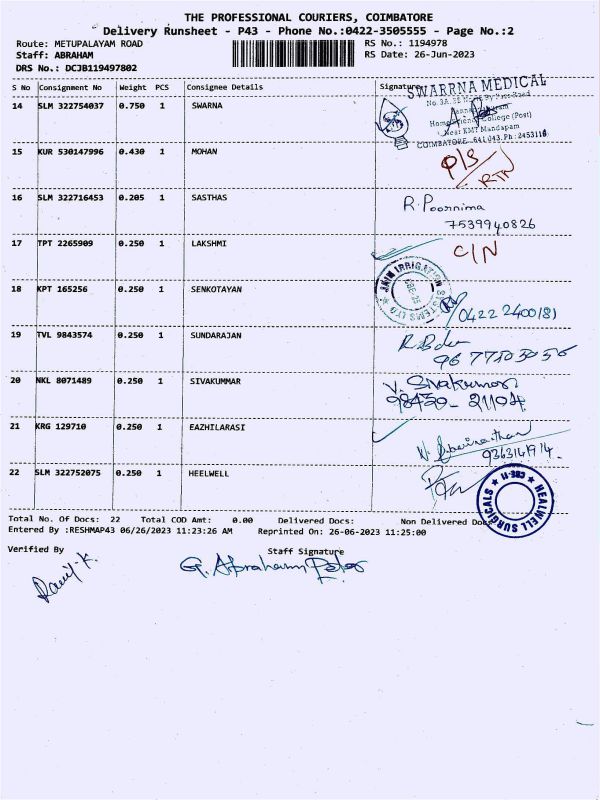 THE PROFESSIONAL COURIERS, COIMBATORE
Delivery Runsheet - P43 - Phone No.:0422-3505555 - Page No.:2
Route: METUPALAYAM ROAD
RS No.: 1194978
Staff: ABRAHAM
RS Date: 26-Jun-2023
DRS No.: DCJB119497802
S No Consignment No Weight PCS Consignee Details Signature
SWARRNA MEDICAL
14 SLM 322754037 0.750 1 SWARNA
College (Post)
Near KMT Mandapam
COIMBATORE - 641 043. Ph : 2453116
15 KUR 530147996 0.430 1 MOHAN
P/S
RTN
16 SLM 322716453 0.205 1 SASTHAS
R. Poornima
7539940826
17 TPT 2265909 0.250 1 LAKSHMI
C/N
18 KPT 165256 0.250 1 SENKOTAYAN
JAIN IRRIGATION SYSTEMS LTD
CBE-25
0422 2400181
19 TVL 9843574 0.250 1 SUNDARAJAN
20 NKL 8071489 0.250 1 SIVAKUMMAR
V. Sivakumar
98430-21104
21 KRG 129710 0.250 1 EAZHILARASI
22 SLM 322752075 0.250 1 HEELWELL
HEALWELL SURGICALS
CBE-11
Total No. Of Docs: 22 Total COD Amt: 0.00 Delivered Docs: Non Delivered Docs
Entered By :RESHMAP43 06/26/2023 11:23:26 AM Reprinted On: 26-06-2023 11:25:00
Verified By
Staff Signature
G. Abraham